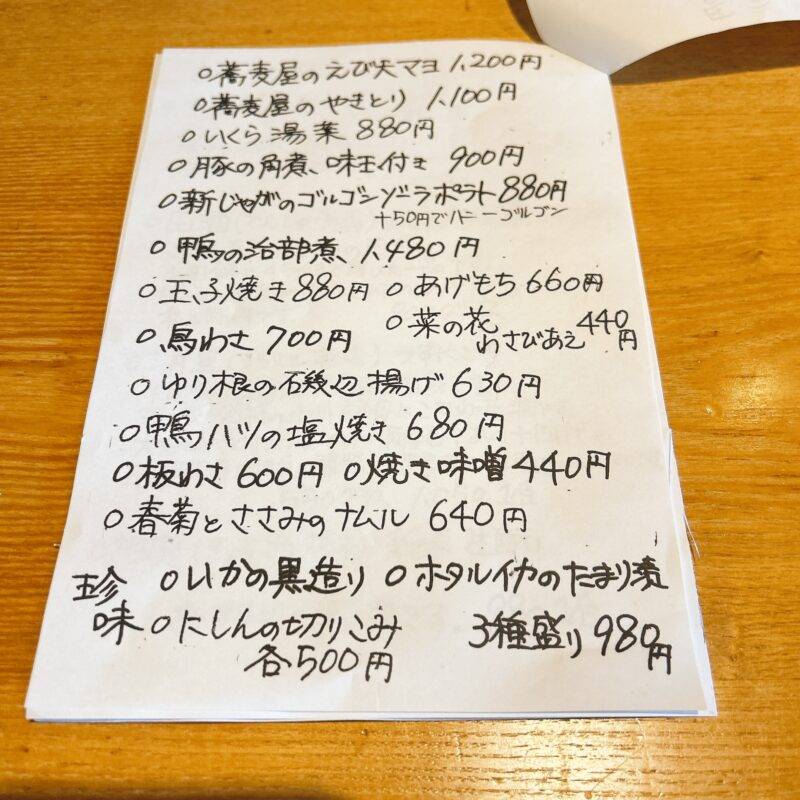 ○蕎麦屋のえび天マヨ 1,200円
○蕎麦屋のやきとり 1,100円
○いくら湯葉 880円
○豚の角煮、味玉付き 900円
○新じゃがのゴルゴンゾーラポテト 880円
+50円でハニーゴルゴン
○鴨の治部煮、1,480円
○玉子焼き 880円 ○あげもち 660円
○鳥わさ 700円 ○菜の花わさびあえ 440円
○ゆり根の磯辺揚げ 630円
○鴨ハツの塩焼き 680円
○板わさ 600円 ○焼き味噌 440円
○春菊とささみのナムル 640円
珍味 ○いかの黒造り ○ホタルイカのたまり漬
○にしんの切りこみ 3種盛り 980円
各500円